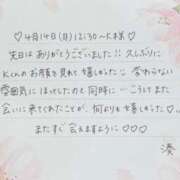 ♡4月14日(月)12:30〜K様♡
先日はありがとうございました!! 久しぶりに
Kくんのお顔を見れて嬉しかった!! 変わらない
雰囲気にほっとしたのと同時に…こうしてまた
会いに来てくれたことが、何よりも嬉しかった!!
またすぐ会えますように♡♡♡
湊